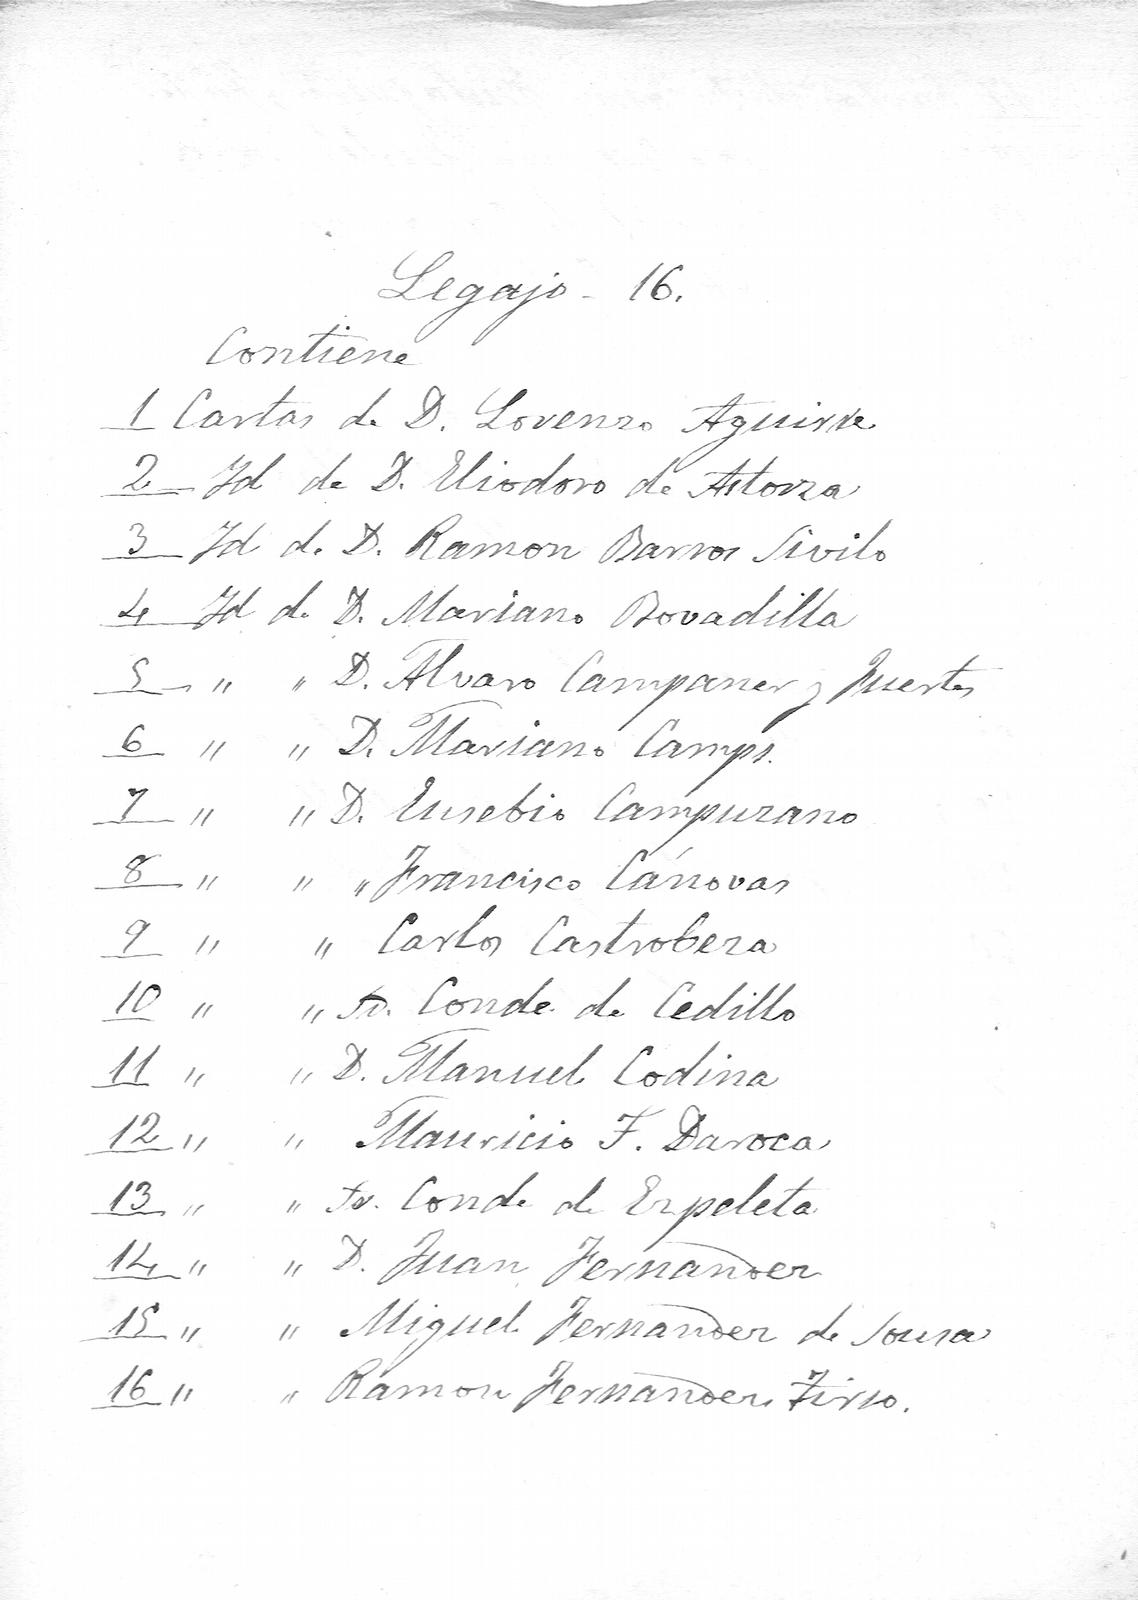 Legajo - 16.
Contiene
1 Cartas de D. Lorenzo Aguirre
2 Id de D. Eliodoro de Astorza
3 Id de D. Ramon Barros Sivilo
4 Id de D. Mariano Bovadilla
5 " " D. Alvaro Campaner y Fuertes
6 " " D. Mariano Camps.
7 " " D. Eusebio Campuzano
8 " " " Francisco Cánovas
9 " " Carlos Castrobeza
10 " " Sr. Conde de Cedillo
11 " " D. Manuel Codina
12 " " Mauricio F. Daroca
13 " " Sr. Conde de Ezpeleta
14 " " D. Juan Fernandez
15 " " Miguel Fernandez de Sousa
16 " " Ramon Fernandez Tirso.